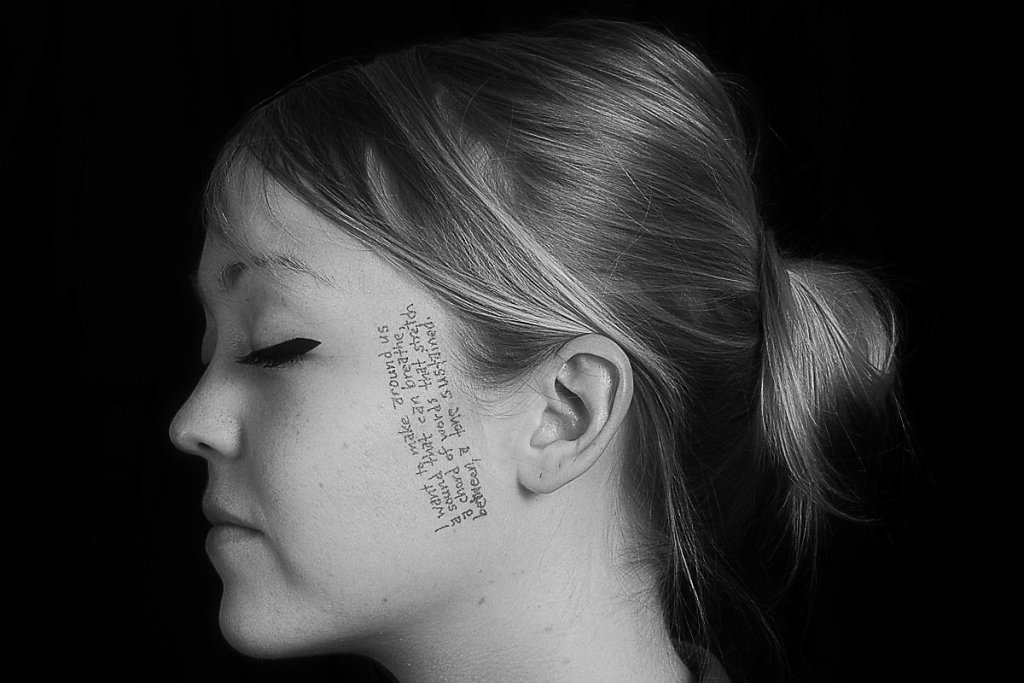 I want to make around us
a sound that can breathe,
a chord of words that stretch
between, a tone sustained.